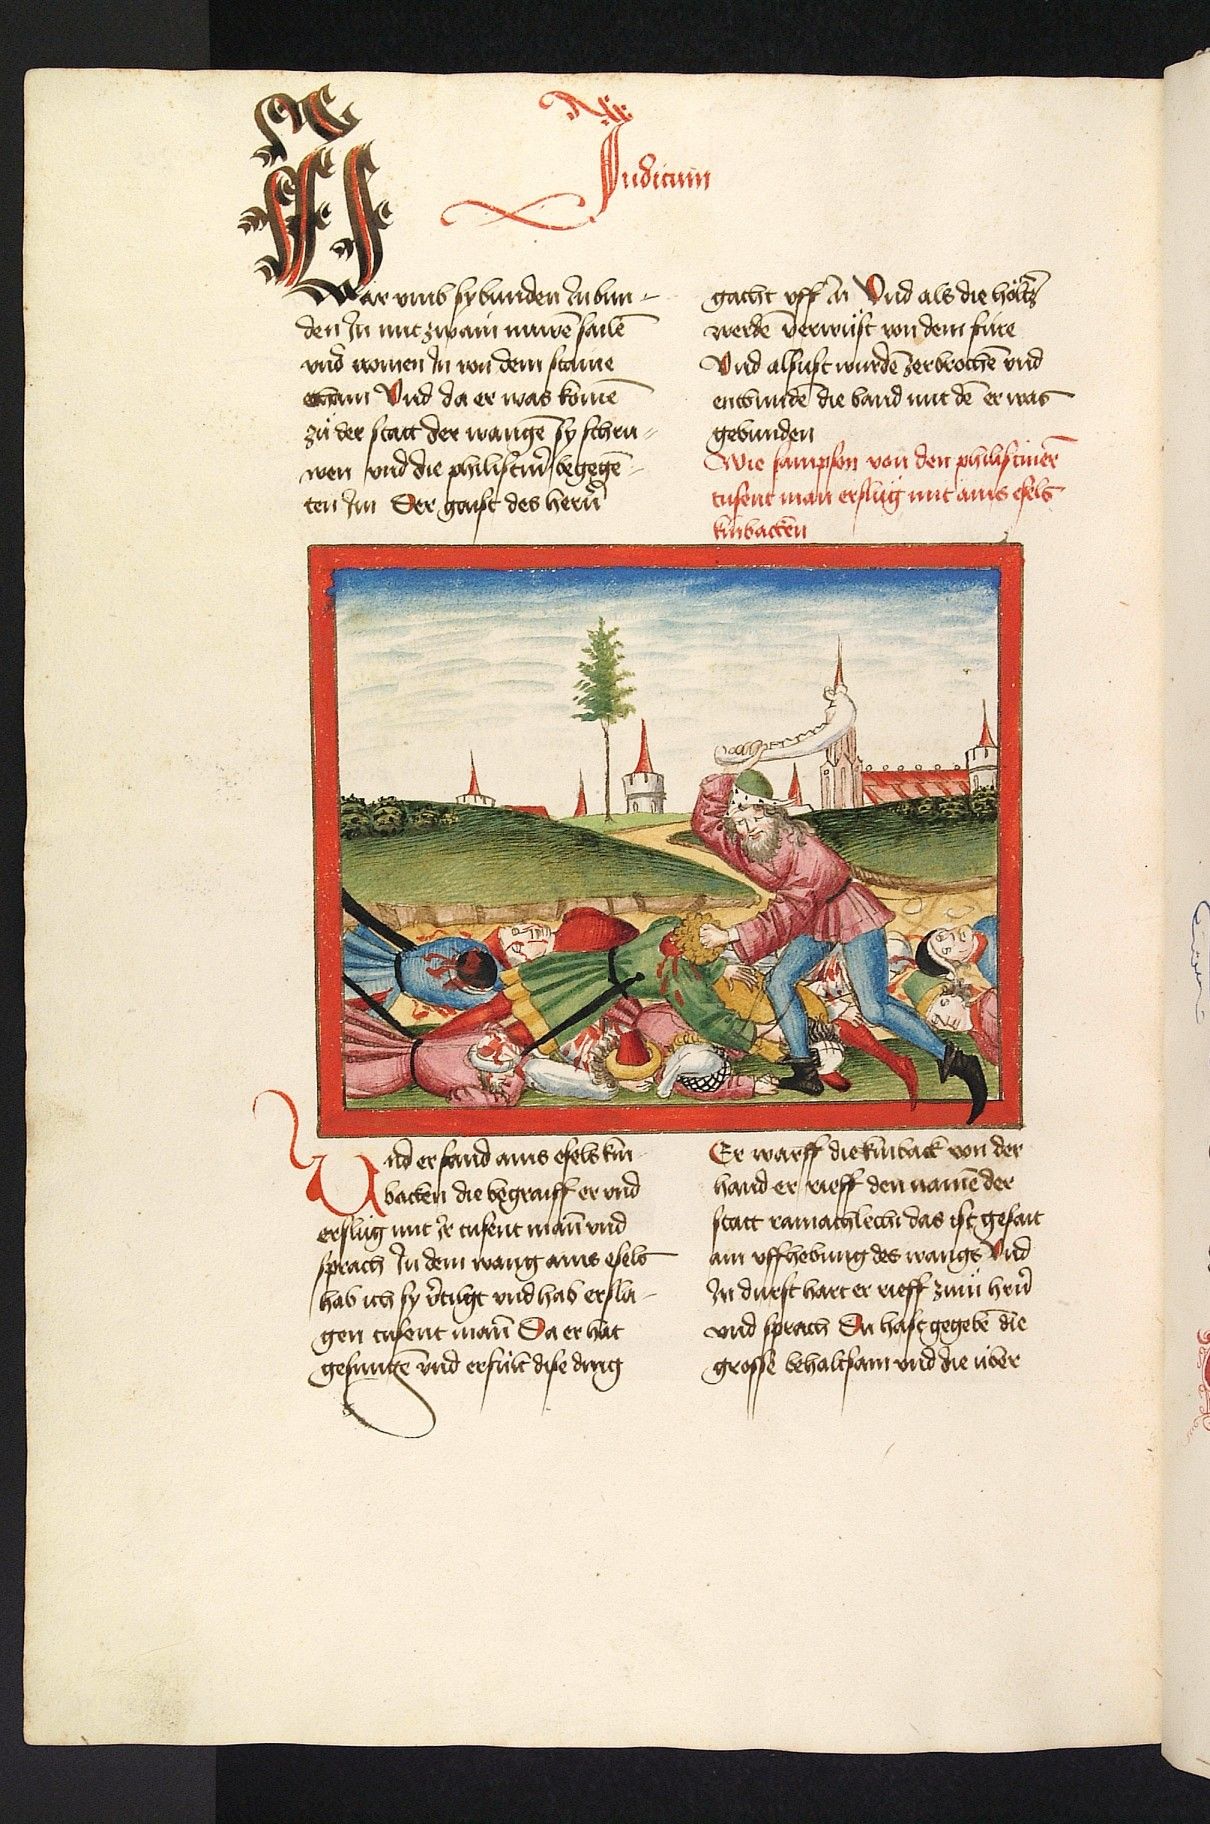 Judicum
War vmb sy bunden In bun-
den In mit zwain nüwē sailē
vnd nomen In von dem staine
etham Vnd da er was komē
zü der statt der wangē sy schru-
wen vnd die philistin̄ begegē-
ten Im Der gaist des herr̄
gacht vff In Vnd als die höltz̄
werdē verwüst von dem füre
Vnd alsust wurdē zerbrochē vnd
entbundē die band mit dē er was
gebunden
Wie sampson von den philistinēr
tusent man erslüg mit ains esels
kinbacken
Vnd er fand ains esels kin-
backen die begraiff er vnd
erslüg mit Ir tusent man̄ vnd
sprach In dem wang ains esels
hab ich sy v̄tilgt vnd hab ersla-
gen tusent man̄ Da er hat
gesungē vnd erfült dise ding
Er warff die kinback von der
hand er rieff den namē der
statt ramathlechi das ist gesait
ain vffhebung des wangs Vnd
In durst hart er rieff zuü herr̄
vnd sprach Du hast gegebē die
grosse behaltsam vnd die über